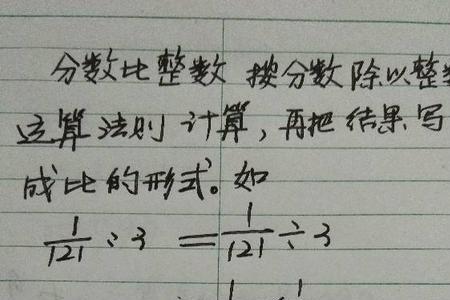 分数比整数 按分数除以整
运算法则计算，再把结果写
成比的形式。如
1/121 : 3 = 1/121 ÷ 3